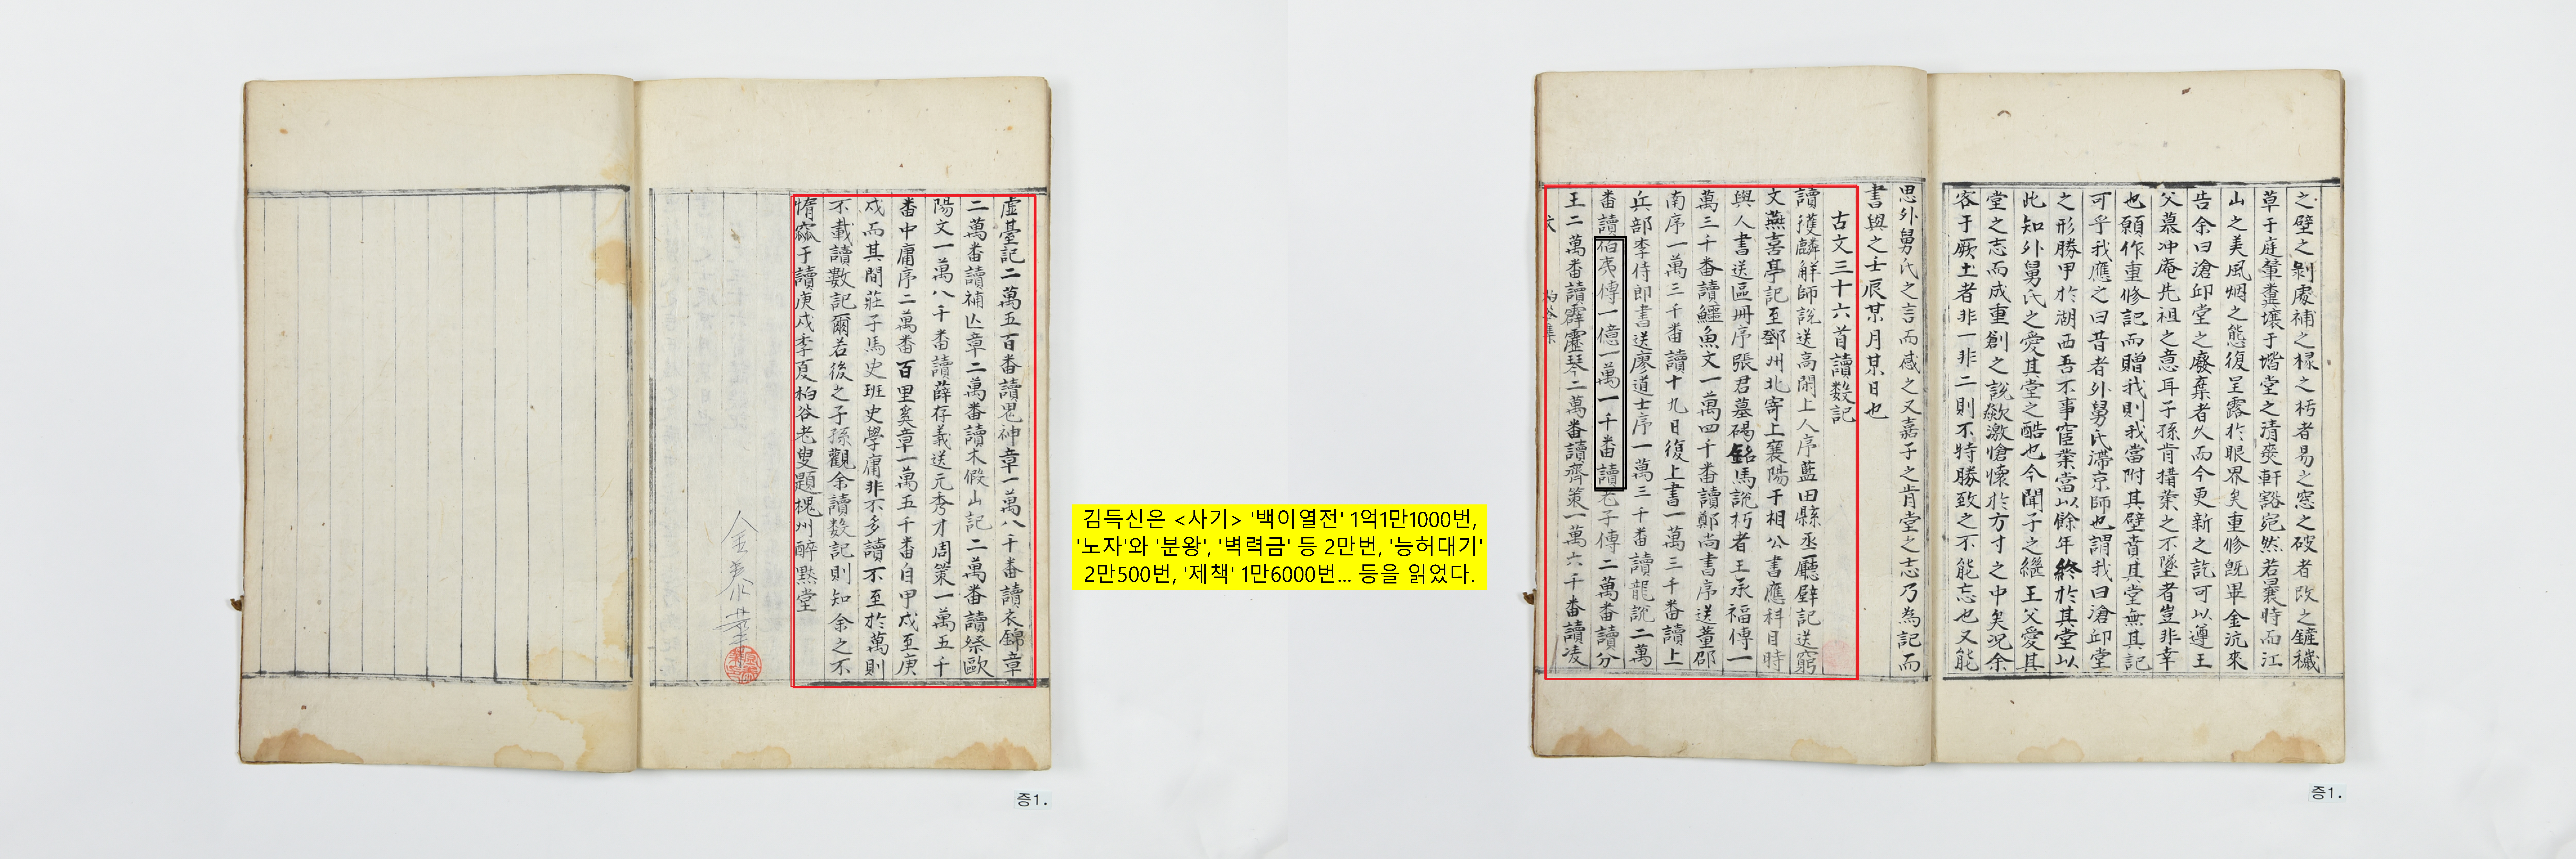 之壁之剝處補之樑之朽者易之窓之破者改之鏟穢
草于庭輦糞壤于堦堂之清爽軒豁宛然若曩時而江
山之美風烟之態復呈露於眼界矣重修旣畢金沆來
告余曰滄邱堂之廢棄者久而今更新之訖可以遵王
父慕冲庵先祖之意耳子孫肯搆業之不墜者豈非幸
也願作重修記而贈我則我當附其壁賁其堂無其記
可乎我應之曰昔者外舅氏滯京師也謂我曰滄邱堂
之形勝甲於湖西吾不事宦業當以餘年終於其堂以
此知外舅氏之愛其堂之酷也今聞子之繼王父愛其
堂之志而成重創之說欻激愴懷於方寸之中矣况余
客于厥土者非一非二則不特勝致之不能忘也又能
思外舅氏之言而感之又嘉子之肯堂之志乃為記而
書與之壬辰某月某日也
古文三十六首讀數記
讀獲麟解師說送高閑上人序藍田縣丞廳壁記送窮
文燕喜亭記至鄧州北寄上襄陽于相公書應科目時
與人書送區冊序張君墓碣銘馬說朽者王承福傳一
萬三千番讀鱷魚文一萬四千番讀鄭尚書序送董邵
南序一萬三千番讀十九日復上書一萬三千番讀上
兵部李侍郎書送廖道士序一萬三千番讀龍說二萬
番讀伯夷傳一億一萬一千番讀老子傳二萬番讀分
王二萬番讀霹靂琴二萬番讀齊策一萬六千番讀凌
柏谷集
증1.
김득신은 <사기> '백이열전' 1억1만1000번,
'노자'와 '분왕', '벽력금' 등 2만번, '능허대기'
2만500번, '제책' 1만6000번... 등을 읽었다.
虛臺記二萬五百番讀鬼神章一萬八千番讀衣錦章
二萬番讀補亡章二萬番讀木假山記二萬番讀祭歐
陽文一萬八千番讀薛存義送元秀才周策一萬五千
番中庸序二萬番百里奚章一萬五千番自甲戌至庚
戌而其間莊子馬史班史學庸非不多讀不至於萬則
不載讀數記爾若後之子孫觀余讀數記則知余之不
惰窳于讀庚戌季夏柏谷老叟題槐州醉默堂
증1.